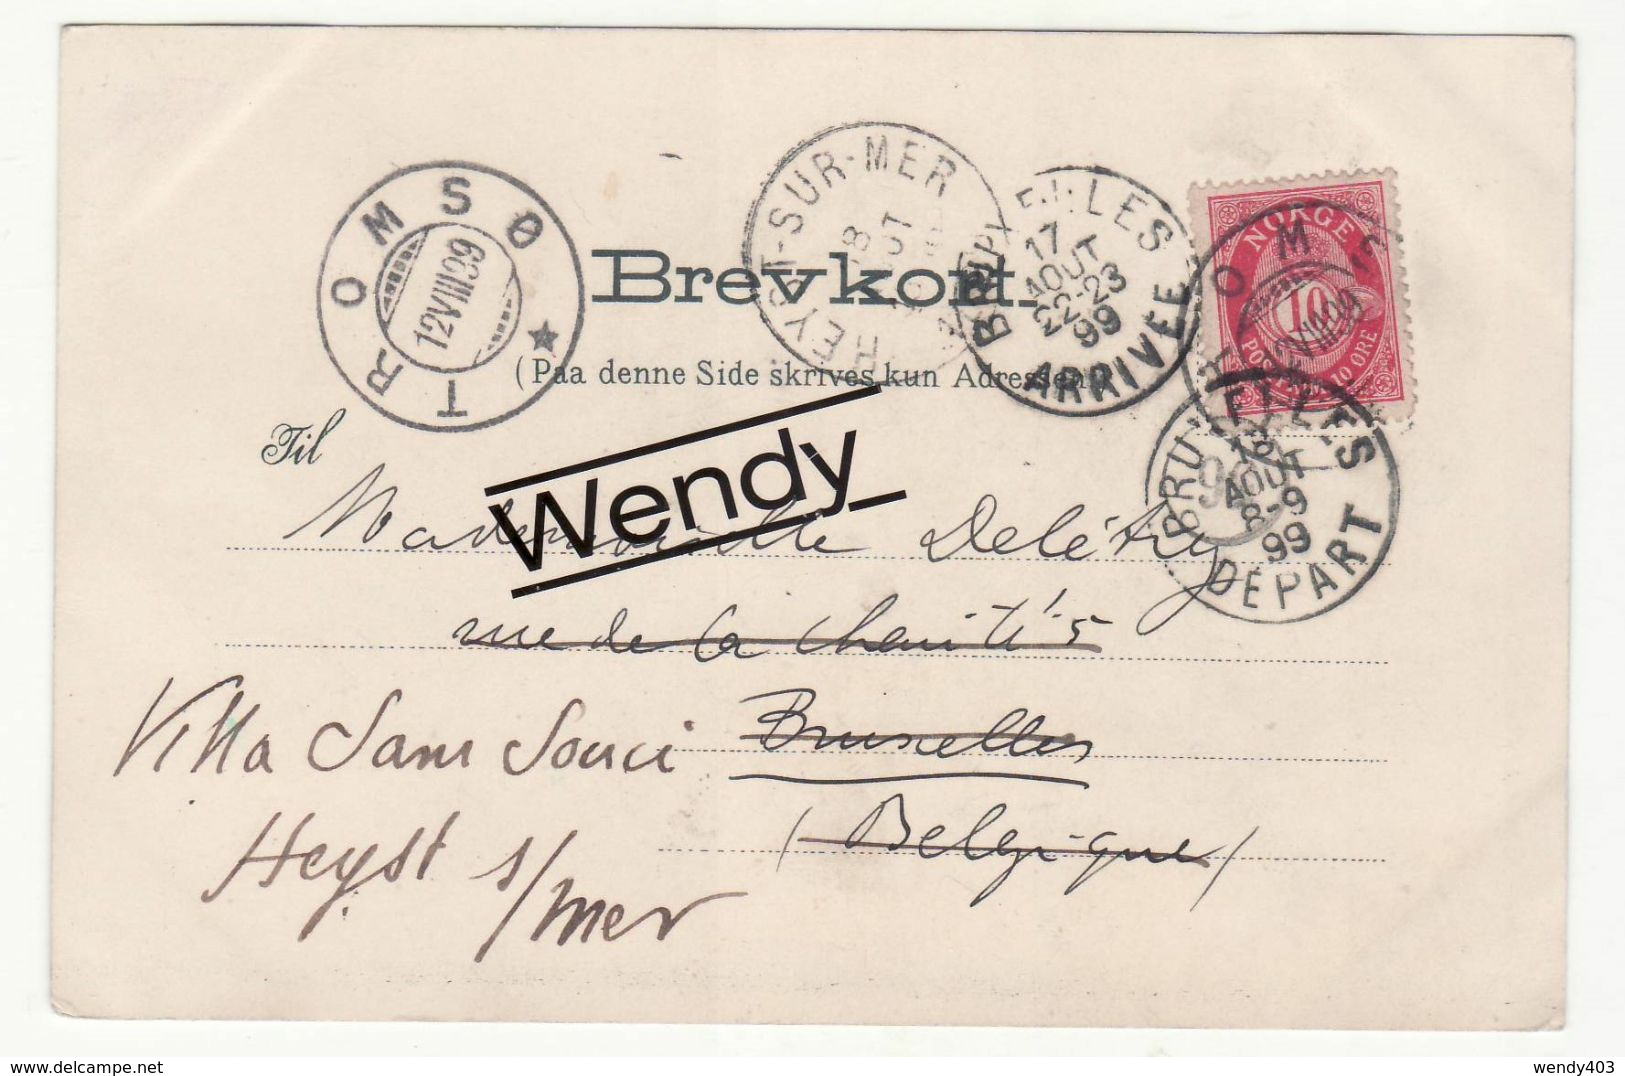 TROMSØ
12 VIII 99
HEYST-SUR-MER
BRUXELLES
17
AOUT
22-23
99
ARRIVÉE
NORGE
10
POSTFRIM. 10 ØRE
BRUXELLES
18
AOUT
8-9
99
DÉPART
Brevkort.
(Paa denne Side skrives kun Adressen.)
Til
Wendy
Mademoiselle Delétry
rue de la Charité 5
Villa Sans Souci Bruxelles
Heyst s/mer (Belgique)
wendy403